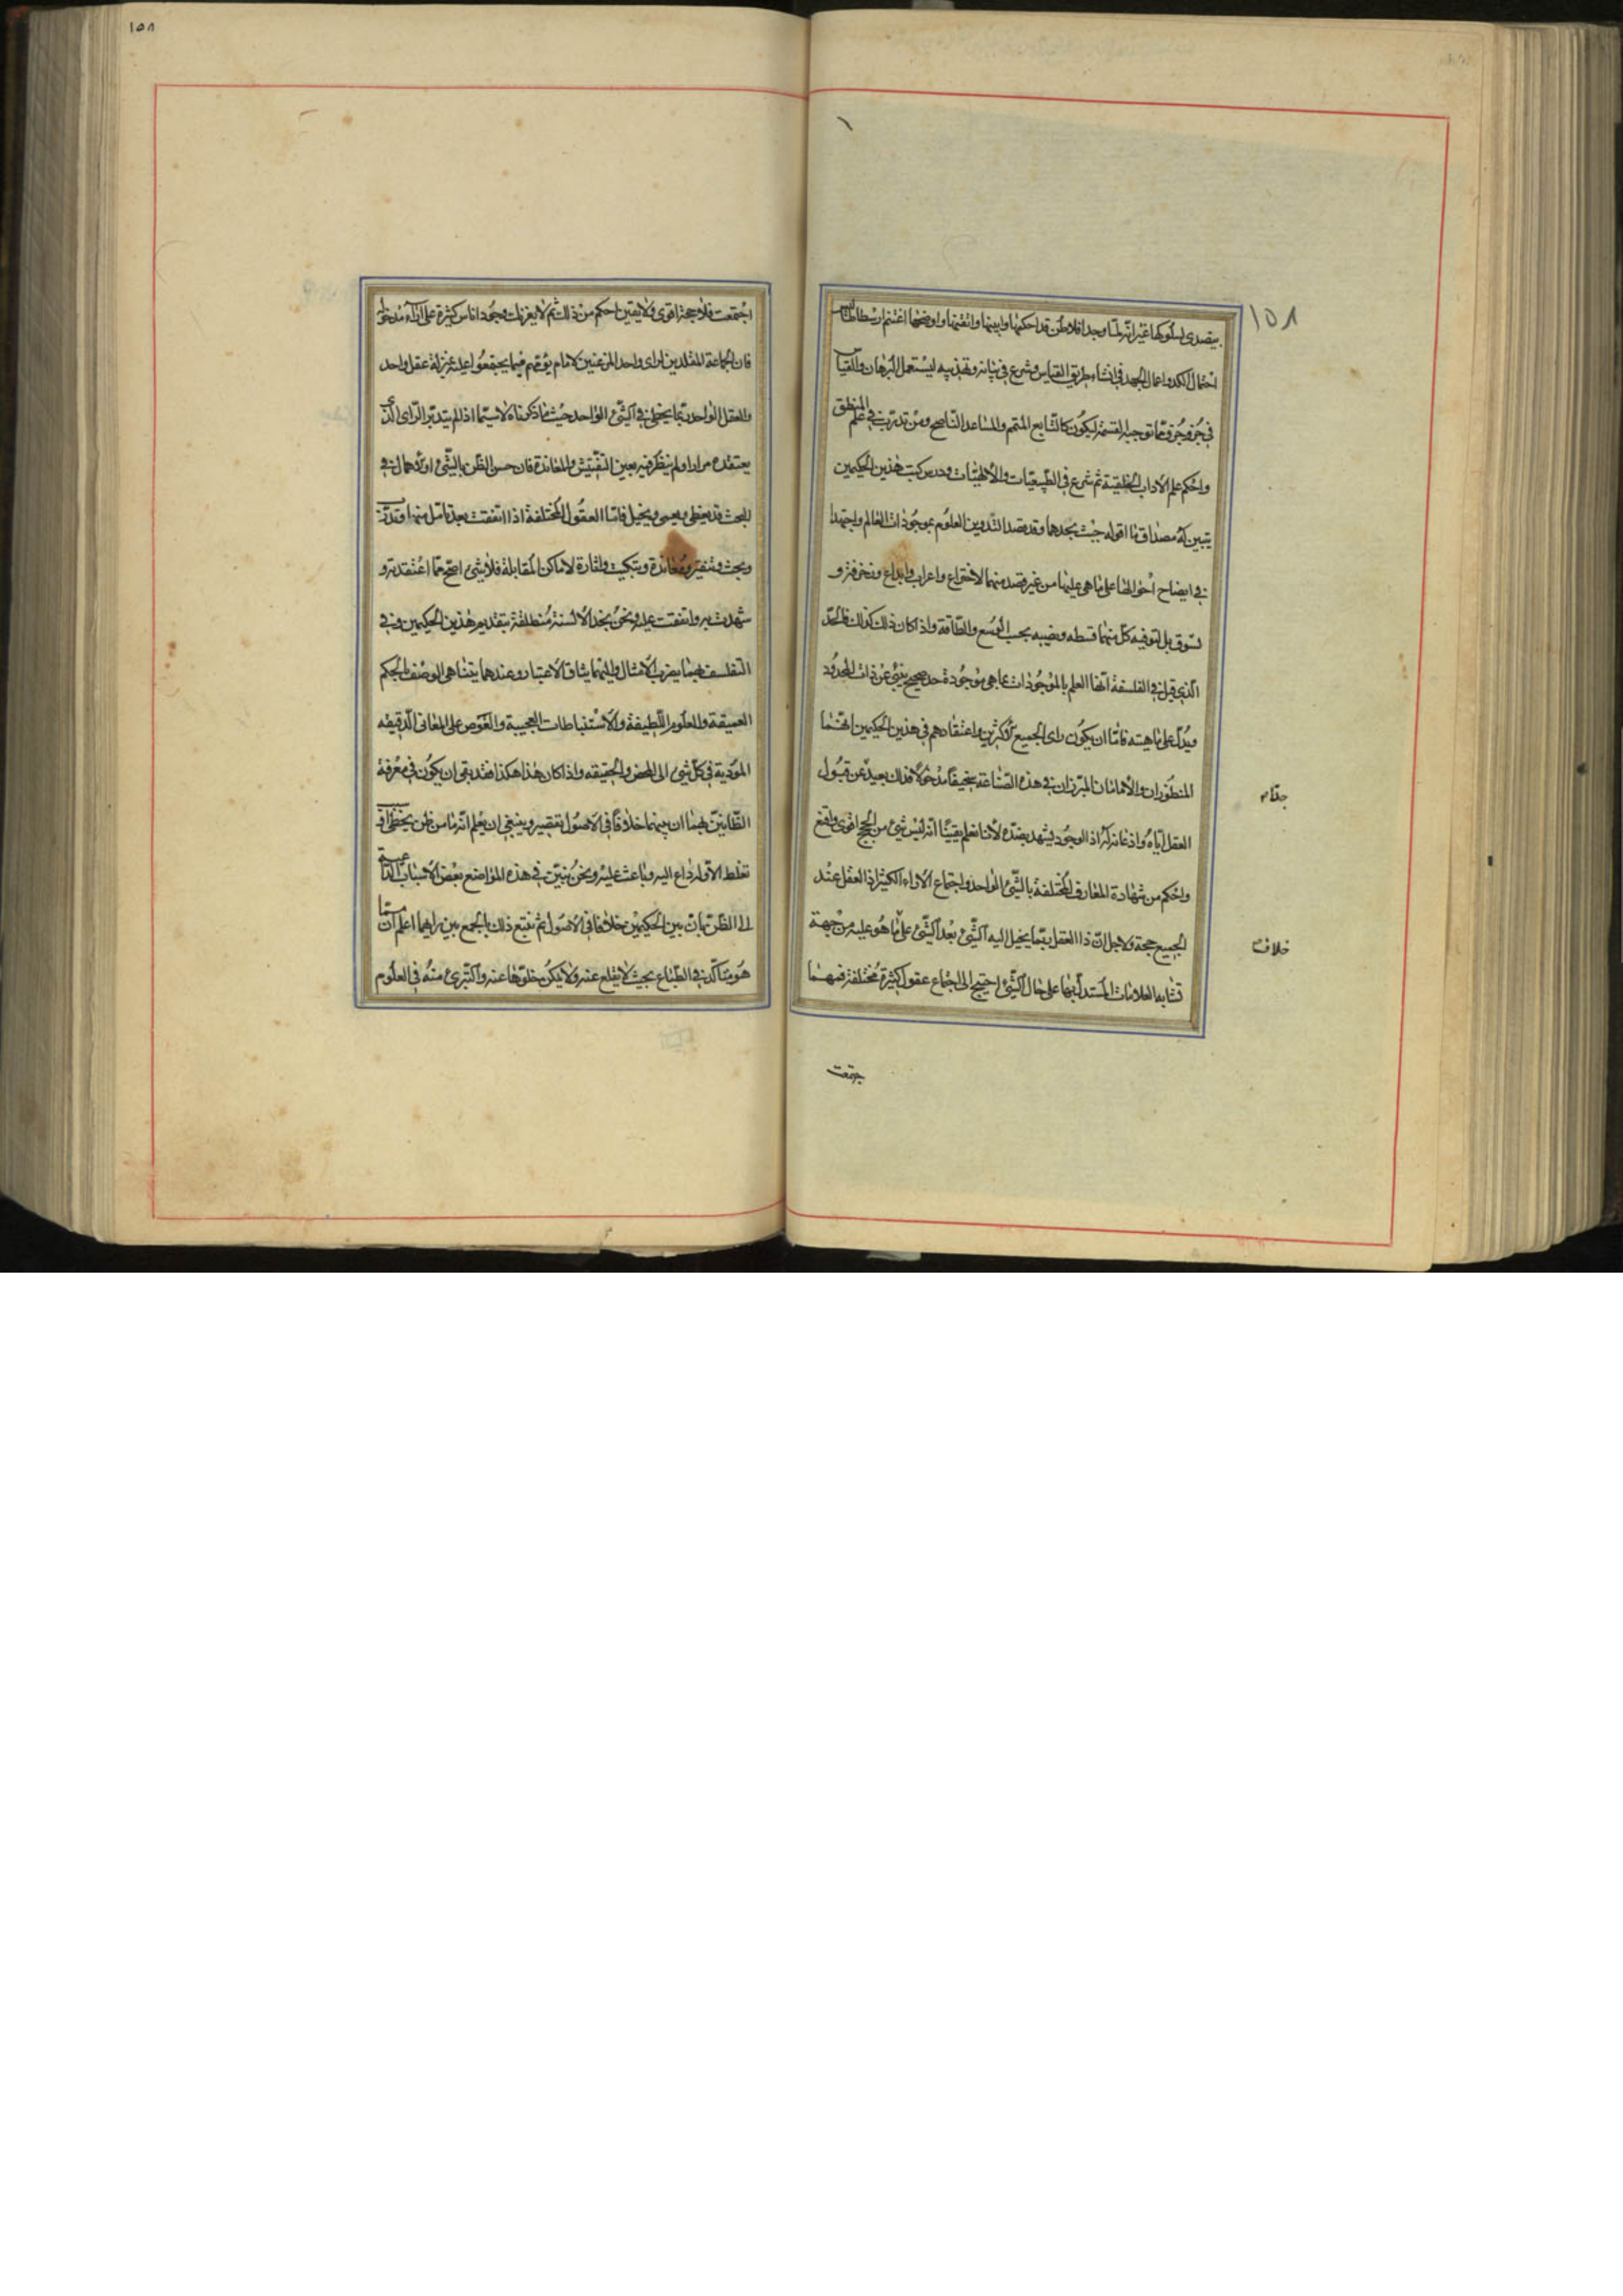 ١٥٨
يتصدى لسلوكها غير انه لما وجد افلاطن قد احكمها وابينها واتقنها واوضحها اغتنم ارسطاطاليس
احتمال الكد واعمال الجهد في انشاء طريق القياس وشرع في بيانه وتهذيبه ليستعمل البرهان والقياس
في جزو جزو مما توجبه القسمة ليكون كالتابع المتمم والمساعد الناصح ومن تدرب في علم المنطق
واحكم علم الاداب الخلقية ثم شرع في الطبيعيات والالهيات ودرس كتب هذين الحكيمين
يتبين له مصداق ما اقوله حيث يجدهما وقد قصدا تدوين العلوم بموجودات العالم واجتهدا
في ايضاح احوالها على ما هي عليها من غير قصد منهما لاختراع واعراب وابداع وزخرفة و
تسوق بل لتوفية كل منهما قسطه ونصيبه بحسب الوسع والطاقة واذا كان ذلك كذلك فالحد
الذي قيل في الفلسفة انها العلم بالموجودات بما هي موجودة حد صحيح ينبئ عن ذات المحدود
ويدل على ماهيته فاما ان يكون راى الجميع او الاكثرين واعتقادهم في هذين الحكيمين انهما
المنظوران والامامان المبرزان في هذه الصناعة سخيفا مدخولا فذلك بعيد عن قبول
العقل اياه واذعانه له اذ الوجود يشهد بضده لانا نعلم يقينا انه ليس شئ من الحجج اقوى وانفع
واحكم من شهادة المعارف المختلفة بالشئ الواحد واجتماع الاراء الكثيرة اذ العقل عند
الجميع حجة ولاجل ان ذا العقل ربما يخيل اليه الشئ بعد الشئ على ما هو عليه من جهة
تشابه العلامات المستدل بها على حال الشئ احتيج الى اجتماع عقول كثيرة مختلفة فمهما
خلاف
جتمعت
١٥٨
اجتمعت فلا حجة اقوى ولا يقين احكم من ذلك ثم لا يغرنك وجود اناس كثيرة على اراء مدخولة
فان الجماعة المقلدين لراى واحد المذعنين لامام يؤمهم فيما يجتمعوا عليه بمنزلة عقل واحد
والعقل الواحد ربما يخطي في الشئ الواحد حيث ما ذكرناه لا سيما اذا لم يتدبر الراى الذي
يعتقده مرارا ولم ينظر فيه بعين التفتيش والمعاندة فان حسن الظن بالشئ او الاهمال في
البحث قد يغطي ويعمي ويخيل فاما العقول المختلفة اذا اتفقت بعد تامل منها وتدرب
وبحث وتنقير ومعاندة وتبكيت واثارة الاماكن المقابلة فلا شئ اصح مما اعتقدته و
شهدت به واتفقت عليه ونحن نجد الالسنة منطلقة بتقديم هذين الحكيمين وفي
التفلسف بهما يضرب الامثال واليهما يساق الاعتبار وعندهما يتناهى الوصف بالحكم
العميقة والعلوم اللطيفة والاستنباطات العجيبة والغوص على المعاني الدقيقة
المؤدية في كل شئ الى المحض والحقيقة واذا كان هذا هكذا فقد بقي ان يكون في معرفة
الظانين بهما ان بينهما خلافا في الاصول تقصير وينبغي ان يعلم انه ما من ظن يخطئ او
تغلط الا وله داع اليه وباعث عليه ونحن نبين في هذه المواضع بعض الاسباب الداعية
الى الظن بان بين الحكيمين خلافا في الاصول ثم نتبع ذلك بالجمع بين رايهما اعلم ان مما
هو متاكد في الطباع بحيث لا يقلع عنه ولا يمكن خلوها عنه والتبرئ منه في العلوم